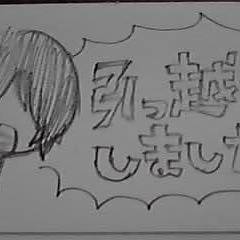 引っ越
しました